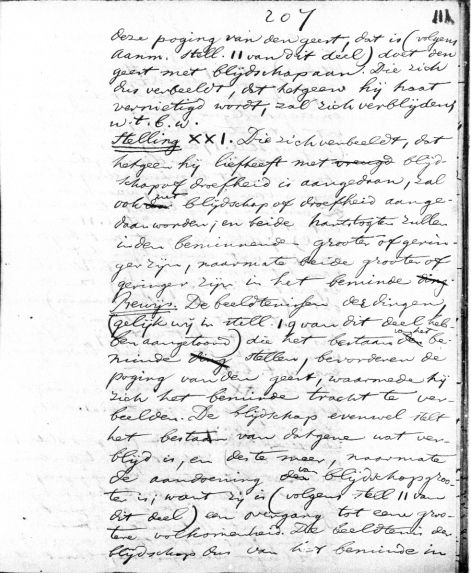 207
deze poging van den geest, dat is (volgens
Aanm. Stell. 11 van dit deel) doet den
geest met blijdschap aan. Die zich
dus verbeeldt, dat hetgeen hij haat
vernietigd wordt, zal zich verblijden;
w.t.b.w.
Stelling XXI. Die zich verbeeldt, dat
hetgee hij liefheeft met vreugd blijd-
schap of droefheid is aangedaan, zal
ook met blijdschap of droefheid aange-
daan worden; en beide hartstogten zullen
in den beminnenden grooter of gerin-
ger zijn, naarmate beide grooter of
geringer zijn in het beminde ding
Bewijs. De beeldtenissen der dingen,
(gelijk wij in stell. 19 van dit deel heb-
ben aangetoond) die het bestaan van het be-
minde ding stellen, bevorderen de
poging van den geest, waarmede hij
zich het beminde tracht te ver-
beelden. De blijdschap evenwel stelt
het bestaan van datgene wat ver-
blijd is, en des te meer, naarmate
de aandoening van blijdschap groo-
ter is; want zij is (volgens stell 11 van
dit deel) een overgang tot eene groo-
tere volkomenheid. De beeldtenis der
blijdschap dus van het beminde in